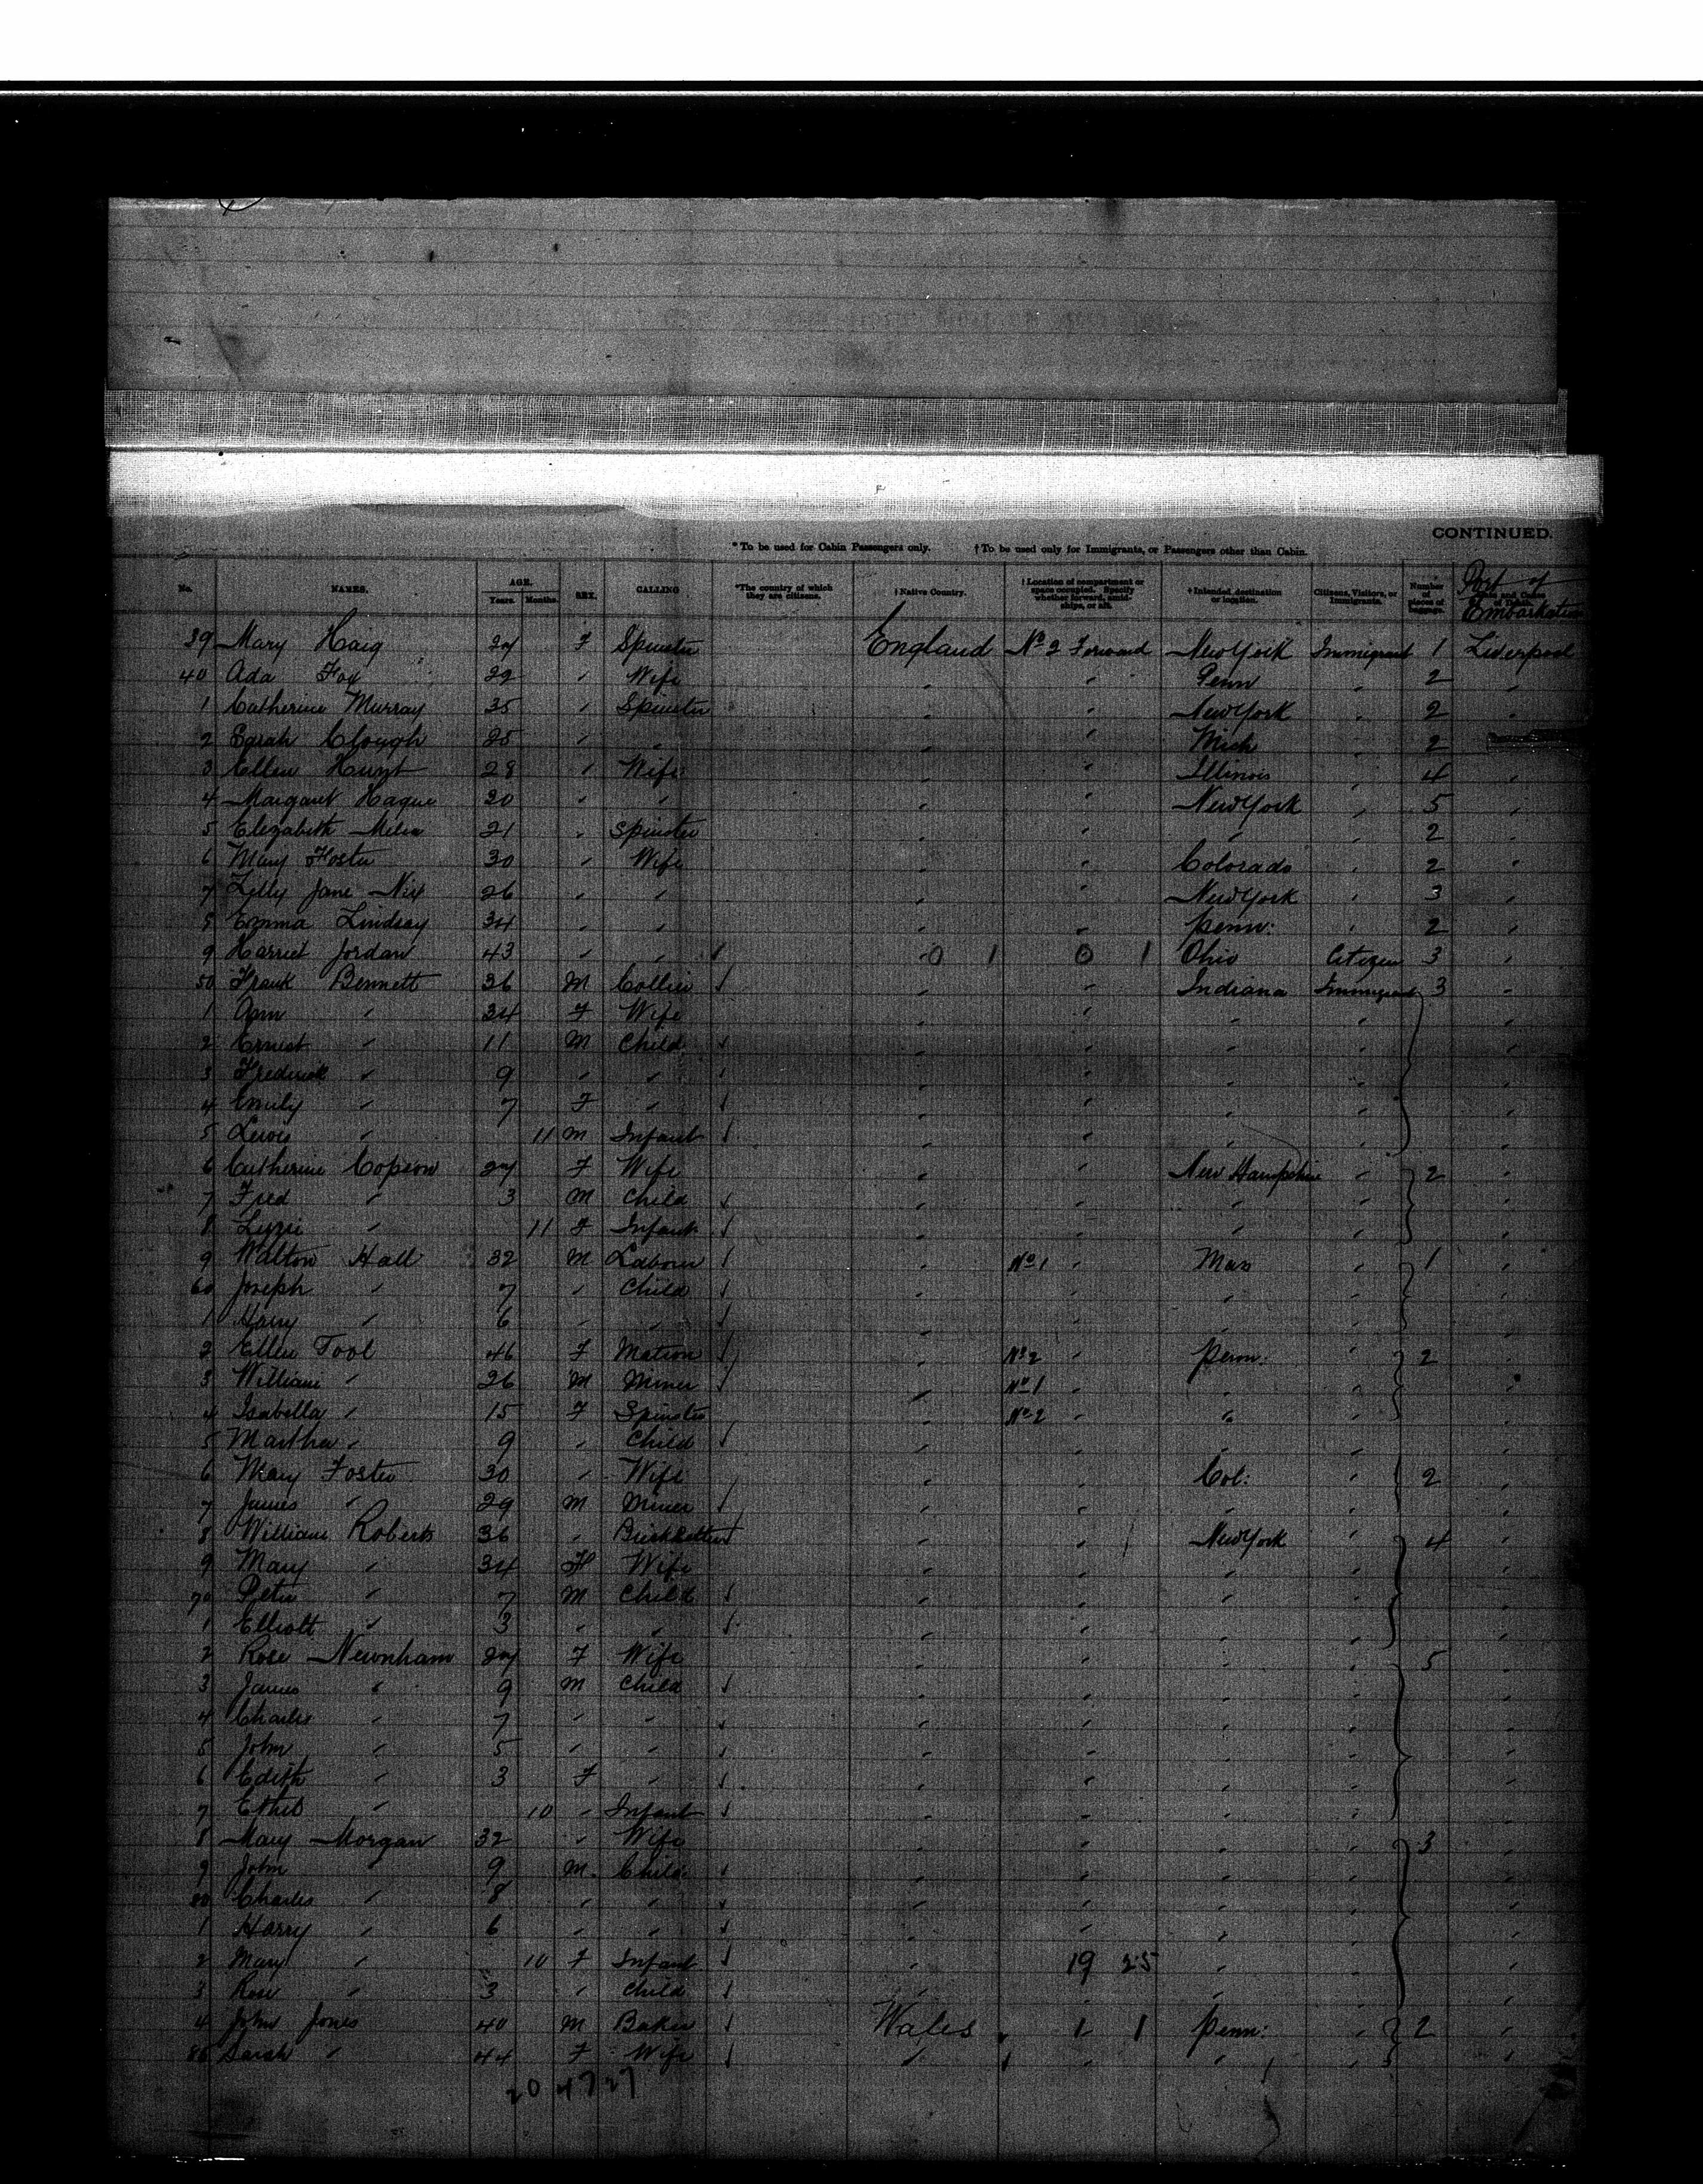 CONTINUED.
* To be used for Cabin Passengers only. † To be used only for Immigrants, or Passengers other than Cabin.
No. NAMES. AGE. Years. Months. SEX. CALLING *The country of which they are citizens. † Native Country. † Location of compartment or space occupied. Specify whether forward, amidships, or aft. † Intended destination or location. Citizens, Visitors, or Immigrants. Number of pieces of baggage. Port of Embarkation
39 Mary Haig 27 F Spinster England No 2 Forward New York Immigrant 1 Liverpool
40 Ada Fox 22 " Wife " " Penn " 2 "
1 Catherine Murray 35 " Spinster " " New York " 2 "
2 Sarah Clough 25 " " " " Mich " 2
3 Ellen Hunt 28 " Wife " " Illinois " 4 "
4 Margaret Hague 30 " " " " New York " 5 "
5 Elizabeth Melia 21 " Spinster " " " " 2 "
6 Mary Foster 30 " Wife " " Colorado " 2 "
7 Lilly Jane Nix 26 " " " " New York " 3 "
8 Emma Lindsay 34 " " " " Penn: " 2 "
9 Harriet Jordan 43 " " " 0 1 0 1 Ohio Citizen 3 "
50 Frank Bennett 36 M Collier " " Indiana Immigrant 3 "
1 Ann " 34 F Wife " " " " "
2 Ernest " 11 M Child " " " " "
3 Frederick " 9 " " " " " " "
4 Emily " 7 F " " " " " "
5 Lewis " 11 M Infant " " " " "
6 Catherine Copson 27 F Wife " " New Hampshire " 2 "
7 Fred " 3 M Child " " " " "
8 Lizzie " 11 F Infant " " " " "
9 Walton Hall 32 M Labourer " No 1 " Mass " 1 "
60 Joseph " 7 " Child " " " " "
1 Harry " 6 " " " " " " "
2 Ellen Tool 46 F Matron " No 2 " Penn: " 2 "
3 William " 26 M Miner " No 1 " " " "
4 Isabella " 15 F Spinster " No 2 " " " "
5 Martha " 9 " Child " " " " "
6 Mary Foster 30 " Wife " " Col: " 2 "
7 James " 29 M Miner " " " " "
8 William Roberts 36 " " " New York " 4 "
9 Mary " 34 F Wife " " " " "
70 Peter " 7 M Child " " " " "
1 Elliott " 3 " " " " " " "
2 Rose Newnham 27 F Wife " " " " 5 "
3 James " 9 M Child " " " " "
4 Charles " 7 " " " " " " "
5 John " 5 " " " " " " "
6 Edith " 3 F " " " " " "
7 Ethel " 10 " Infant " " " " "
8 Mary Morgan 32 " Wife " " " " 3 "
9 John " 9 M Child " " " " "
80 Charles " 8 " " " " " " "
1 Harry " 6 " " " " " " "
2 Mary " 10 F Infant " 19 25 " " "
3 Rose " 3 " Child " " " " "
4 John Jones 40 M Baker Wales 1 1 Penn: " 2 "
86 Sarah " 44 F Wife " " " " "
20 47 27